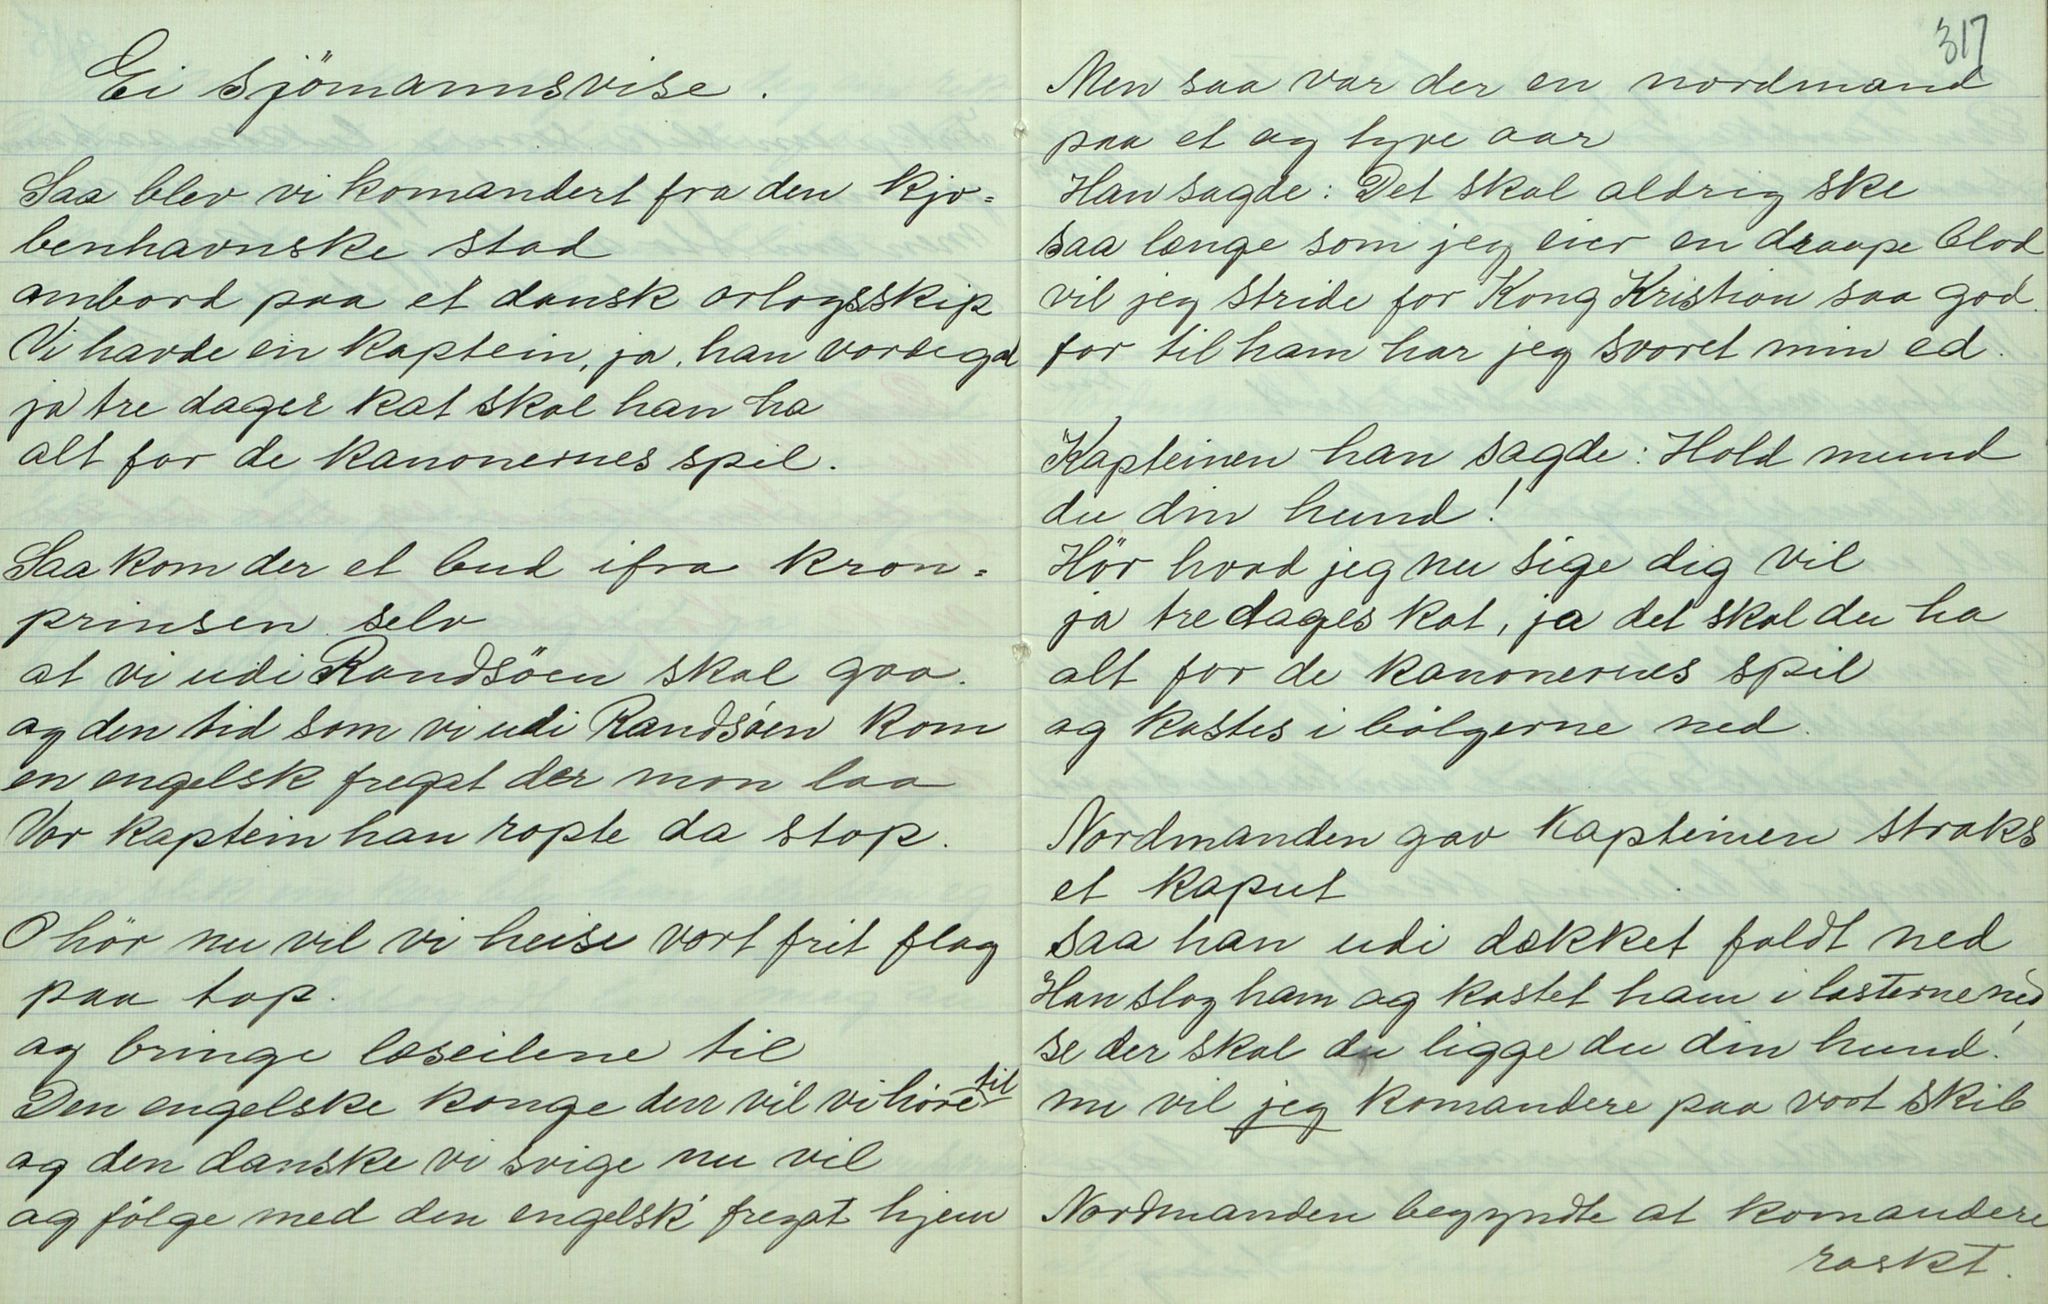 Ei sjömannsvise.
Saa blev vi komandert fra den kjo=
benhavnske stad
ombord paa et dansk orlogsskip
Vi havde en kaptein, ja, han var
ja tre dager kat skal han ha
alt for de kanonernes spil.
Saa kom der et bud ifra kron=
prinsen selv
at vi udi Randsöen skal gaa.
og den tid som vi udi Randsöen kom
en engelsk fregat der mon laa
Vor kaptein han ropte da stop.
O hör nu vil vi heise vort frit flag
paa top.
og bringe læseilene til
Den engelske konge den vil vi höre til
og den danske vi svige nu vil
og fölge med den engelsk fregat hjem
317
Men saa var der en nordmand
paa et og tyve aar
Han sagde: Det skal aldrig ske
saa længe som jeg eier en draape blod
vil jeg stride for Kong Kristian saa god.
for til ham har jeg svoret min ed.
Kapteinen han sagde: Hold mund
du din hund!
Hör hvad jeg nu sige dig vil
ja tre dages kat, ja det skal du ha
alt for de kanonernes spil
og kastes i bölgerne ned.
Nordmanden gav Kapteinen straks
et kaput
saa han udi dækket faldt ned
Han slog ham og kastet ham i lasterne ned
se der skal du ligge du din hund!
nu vil jeg komandere paa vort skib
Nordmanden begyndte at komandere
raskt.